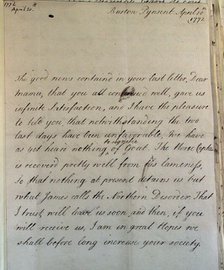 1772
April 20th
Burton Pynsent April 20th
1772
The good news contained in your last letter, Dear
Mama, that you all continued well, gave us
infinite Satisfaction, and I have the pleasure
to tell you that notwithstanding the two
last days have been unfavorable, We have
as yet heard nothing of Gout. The three
is recovered pretty well from his lameness,
so that nothing at present detains us but
what James calls the Northern Disorder. That
I trust will leave us soon, and then, if you
will receive us, I am in great Hopes we
shall before long increase your society.